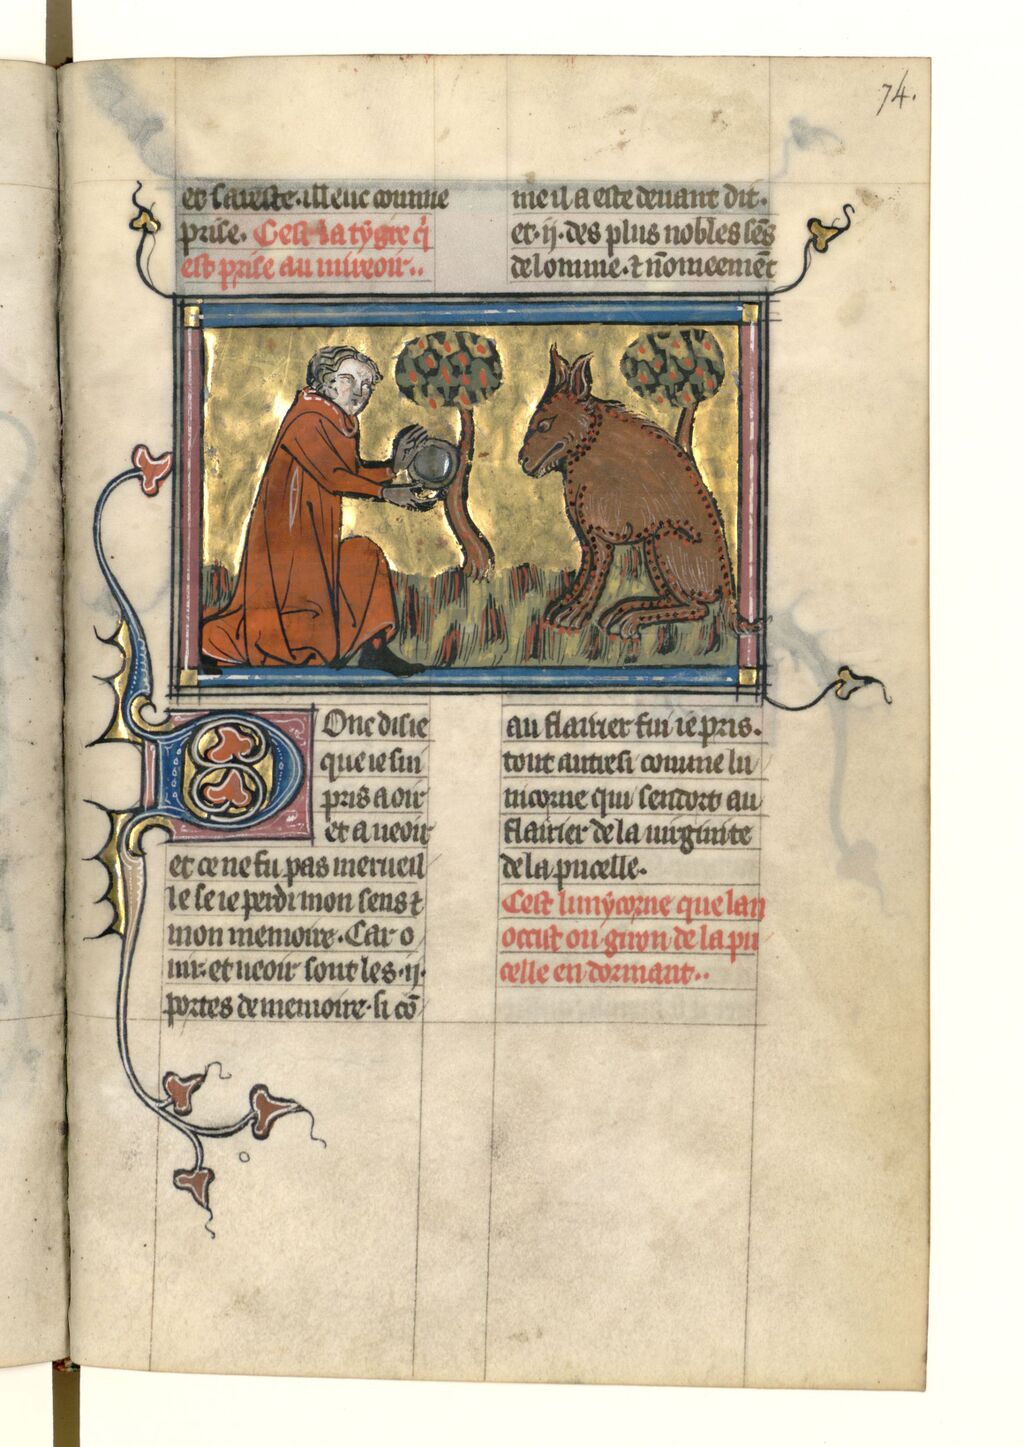 74.
et sareste. illeuc comme
prise. Cest la tygre q̇
est prise au mireoir..
Onc di ie
que ie sui
pris a oir
et a ueoir
et ce ne fu pas merueil
le se ie perdi mon sens ⁊
mon memoire. Car o
ir. et ueoir sont les .ij.
portes de memoire. si cō
me il a este deuant dit.
et .ij. des plus nobles sēs
de lomme. ⁊ nōmeemēt
au flairier fui ie pris.
tout autresi comme lu
nicorne qui sendort au
flairier de la uirginite
de la pucelle.
Cest lunycorne que lan
occist ou giron de la pu
celle en dormant..